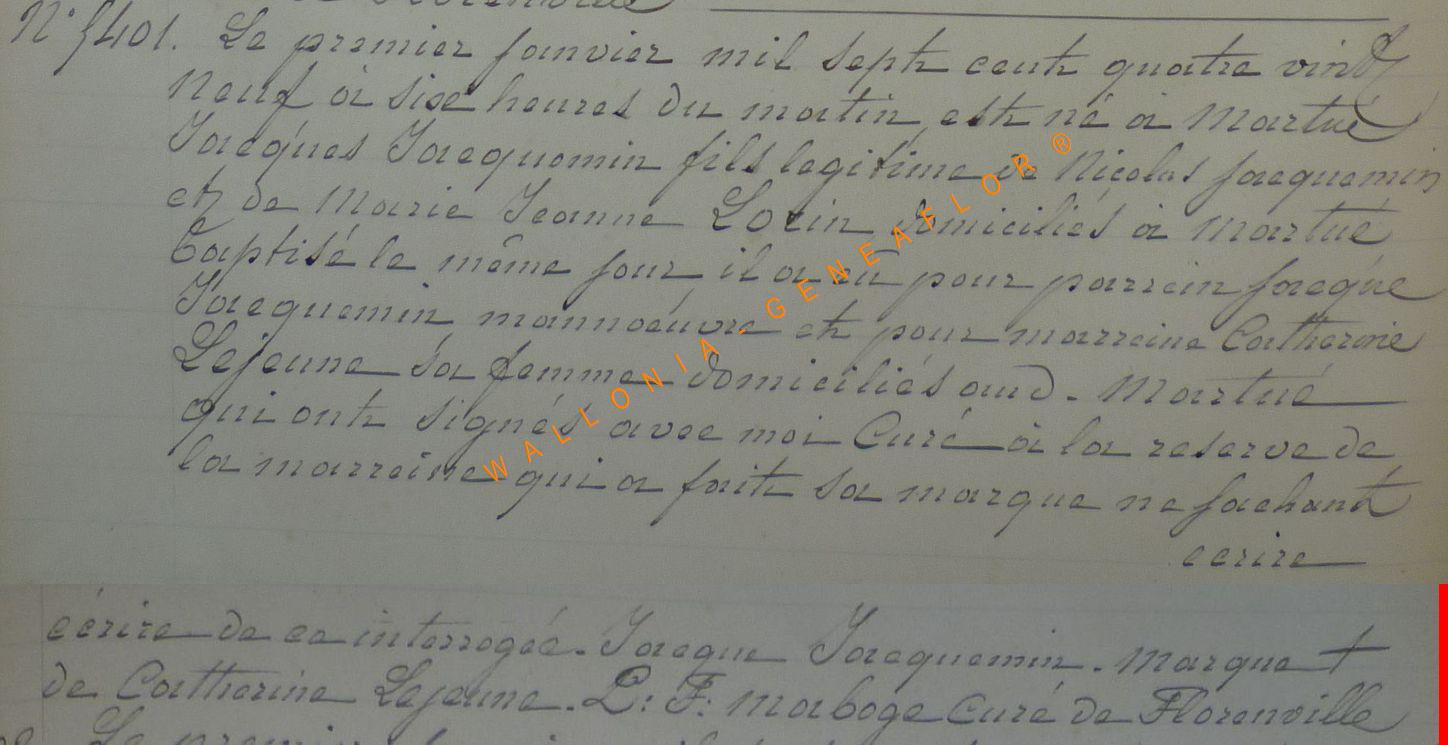 de Florenville
N° 5401. Le premier janvier mil sept cent quatre vingt
Neuf à six heures du matin est né à Martué
Jacques Jacquemin fils legitime de Nicolas jacquemin
et de Marie Jeanne Lozin domiciliés à Martué
Baptisé le même jour, il a eû pour parrein jacque
Jacquemin mannoeuvre et pour marreine Catherine
Lejeune sa femme domiciliés aud. Martué
qui ont signés avec moi Curé à la reserve de
la marreine qui a fait sa marque ne sachant
ecrire
écrire de ce interrogée. Jacque Jacquemin. Marque +
de Catherine Lejeune. P: F: Maboge Curé de Florenville
Le premier
WALLONIA-GENEAFLOR®